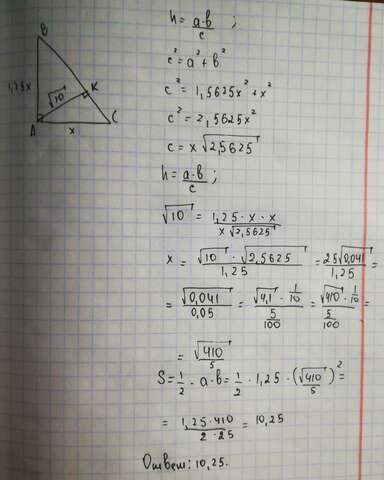 B
1,25x
√10
K
A
x
C
h = a·b / c ;
c² = a² + b²
c² = 1,5625x² + x²
c² = 2,5625x²
c = x√2,5625
h = a·b / c ;
√10 = 1,25 · x · x / x√2,5625
x = √10 · √2,5625 / 1,25 = 25√0,041 / 1,25 =
= √0,041 / 0,05 = √4,1 · 1/10 / 5/100 = √410 · 1/10 / 5/100 =
= √410 / 5
S = 1/2 · a·b = 1/2 · 1,25 · (√410 / 5)² =
= 1,25 · 410 / 2 · 25 = 10,25
Ответ: 10,25.